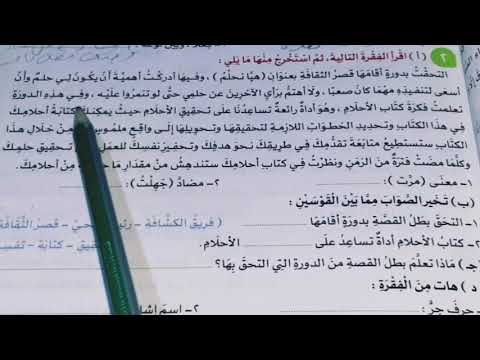 ٢ ( أ ) اقْرَأِ الفِقْرَةَ التَّالِيَةَ، ثُمَّ اسْتَخْرِجْ مِنْهَا مَا يَلِي:
التحقْتُ بدورةٍ أقامَهَا قصرُ الثقافةِ بعنوانِ (هيَّا نحلُمُ) ، وفيهَا أدركْتُ أهميةَ أنْ يكونَ لِي حلمٌ وأنْ
أسعَى لتنفيذِهِ مهمَا كانَ صعبًا ، ولَا أهتمُّ برأيِ الآخرينَ عن حلمِي حتَّى لَو تنمَّرُوا عليهِ ، وفِي هذِهِ الدورةِ
تعلمتُ فكرةَ كتابِ الأحلامِ ، وهوَ أداةٌ رائعةٌ تساعدُنَا علَى تحقيقِ الأحلامِ حيثُ يمكِنُكَ كتابةُ أحلامِكَ
فِي هذَا الكتابِ وتحديدُ الخطواتِ اللازمةِ لتحقيقِهَا وتحويلِهَا إلَى واقعٍ ملموسٍ ، ومِنْ خلالِ هذَا
الكتابِ ستستطيعُ متابعةَ تقدُّمِكَ فِي طريقِكَ نحوَ هدفِكَ وتحفيزَ نفسِكَ للعملِ تحقيقِ حلمِكَ
وكلَّمَا مضَتْ فترةٌ منَ الزمنِ ونظرْتَ فِي كتابِ أحلامِكَ ستندهِشُ منْ مقدارِ مَا منْ أحلامِكَ.
١- معنَى (مرَّت) : ٢- مضادُّ (جَهِلْتُ):
(ب) تَخَيرِ الصَّوابَ مِمَّا بَيْنَ القَوْسَيْنِ:
١- التحقَ بطلُ القصةِ بدورةٍ أقامَهَا (فريقُ الكشَّافَةِ – قصرُ الثَّقافَةِ
٢- كتابُ الأحلامِ أداةٌ تساعِدُ علَى الأحلامِ. – كتابَةِ –
(جـ) مَاذَا تعلَّمَ بطلُ القصةِ منَ الدورةِ التِي التحقَ بِهَا؟
( د ) هاتِ مِنَ الفِقْرَةِ:
١- حرفَ جرٍّ: ٢- اسمَ